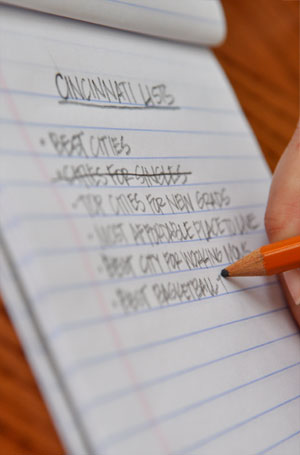 CINCINNATI LISTS
• BEST CITIES
• CITIES FOR SINGLES
• TOP CITIES FOR NEW GRADS
• MOST AFFORDABLE PLACE TO LIVE
• BEST CITY FOR WORKING MOMS
• BEST BASKETBALL